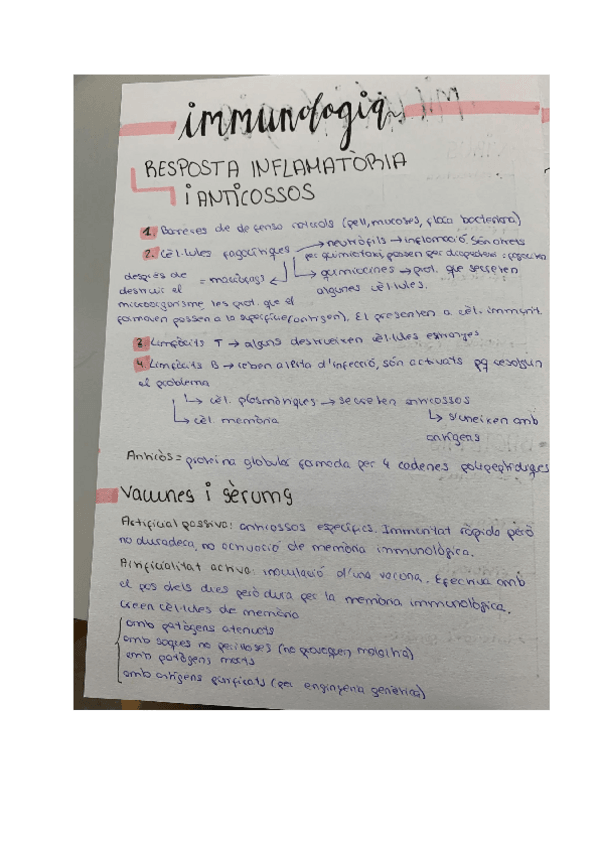 immunologia
RESPOSTA INFLAMATÒRIA
i ANTICOSSOS
1. Barreres de defensa naturals (pell, mucoses, flora bacteriana)
2. Cèl·lules fagocítiques → neutròfils → inflamació. Són atrets
per quimiotaxi, passen per diapedesi
després de = macròfags → quimiocines → prot. que secreten
destruir el algunes cèl·lules.
microorganisme les prot. que el
formaven passen a la superfície (antigen). El presenten a cèl. immunit.
3 Limfòcits T → alguns destrueixen cèl·lules estranyes
4 Limfòcits B → reben alerta d'infecció, són activats pq resolguin
el problema
↳ cèl. plasmàtiques → secreten anticossos
↳ cèl. memòria ↳ s'uneixen amb
antígens
Anticòs = proteïna globular formada per 4 cadenes polipeptídiques
Vacunes i sèrums
Artificial passiva: anticossos específics. Immunitat ràpida però
no duradera, no activació de memòria immunològica.
Artificialitat activa: inoculació d'una vacuna. Efectiva amb
el pas dels dies però dura per la memòria immunològica.
Creen cèl·lules de memòria
amb patògens atenuats
amb soques no perilloses (no provoquen malaltia)
amb patògens morts
amb antígens purificats (per enginyeria genètica)